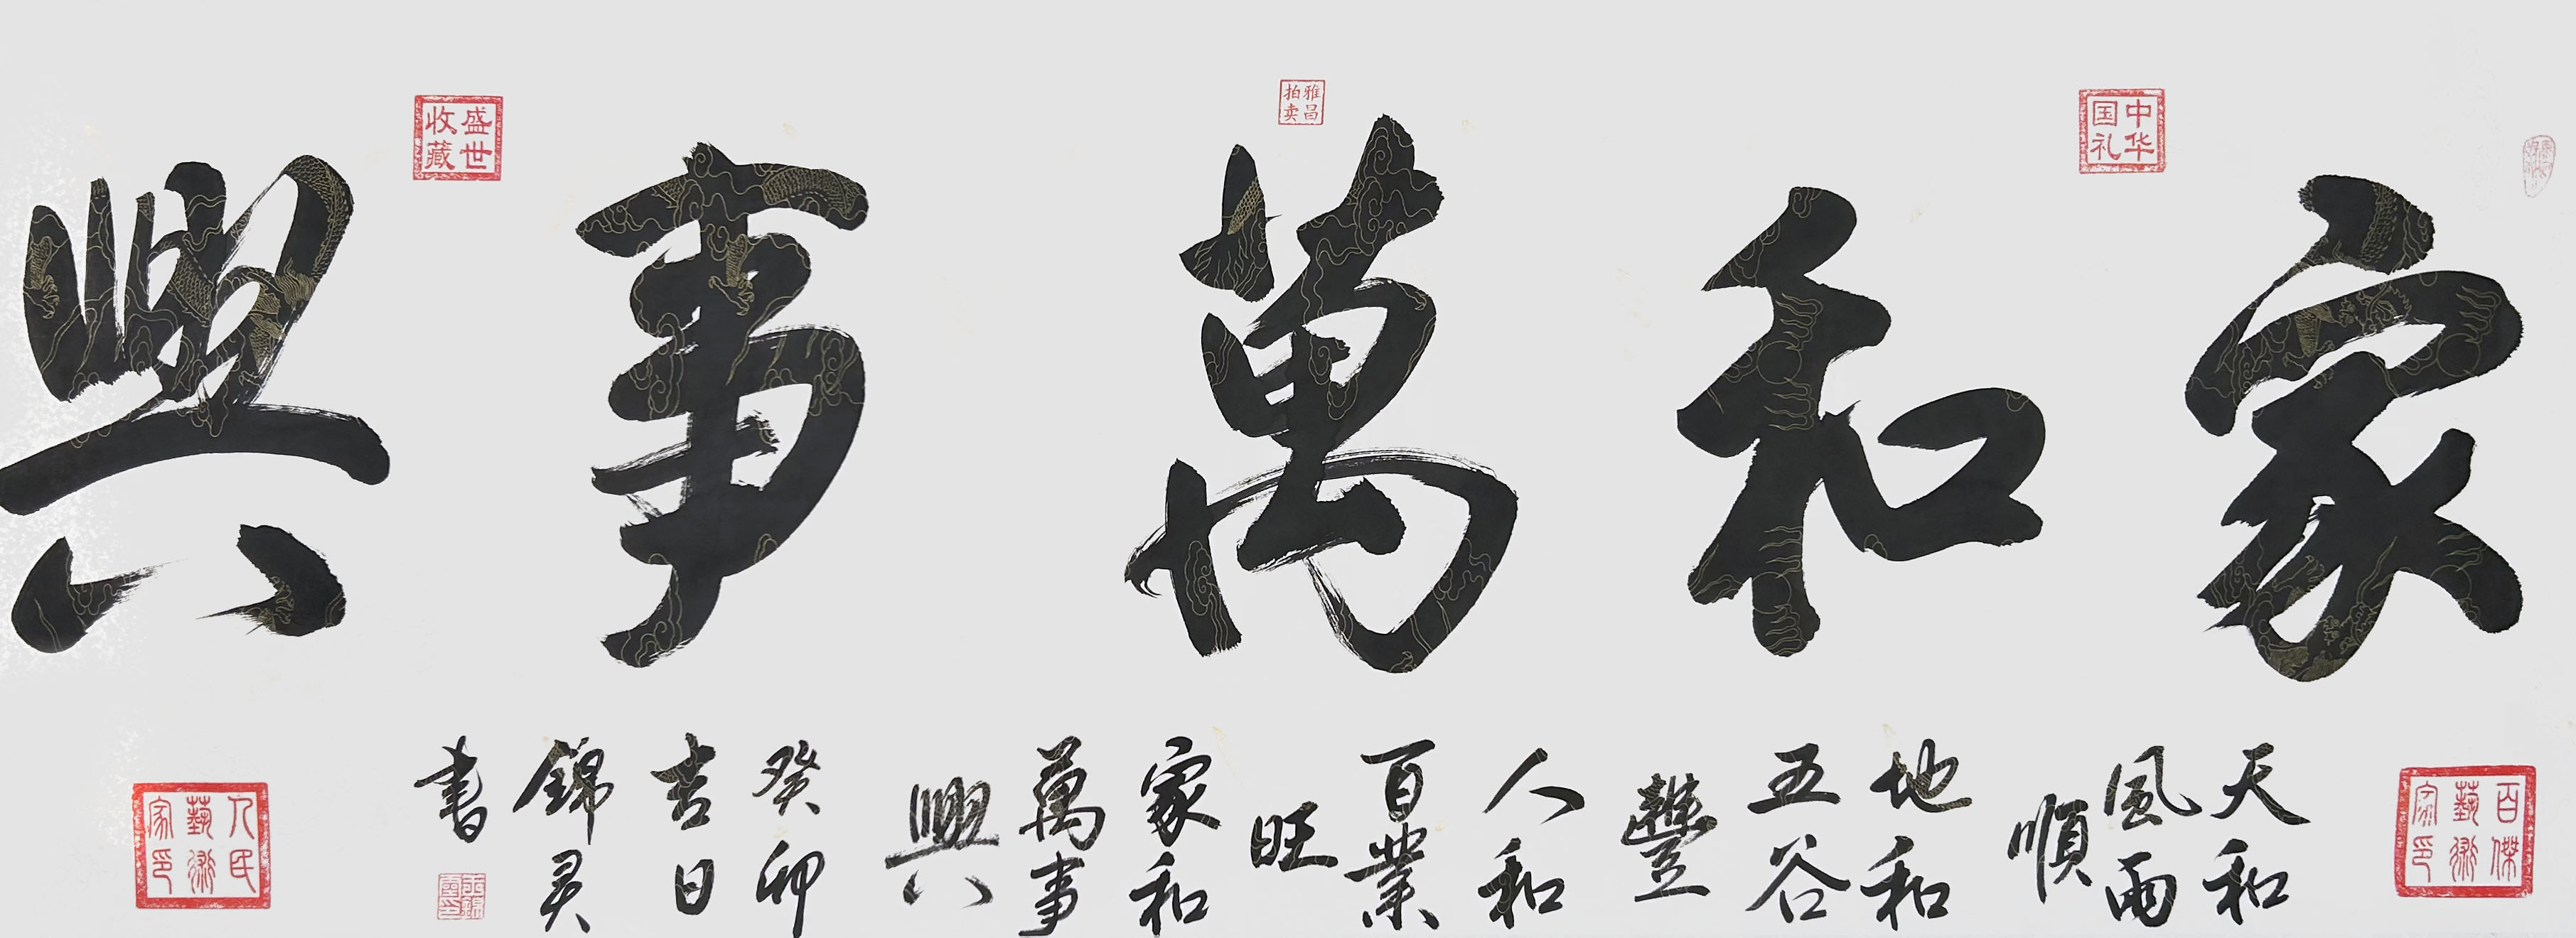 家和萬事興
天和
風雨
順
地和
五谷
豐
人和
百業
旺
家和
萬事
興
癸卯
吉日
錦灵
書
中华国礼
雅昌拍卖
盛世收藏
百傑藝術家印
人民藝術家印